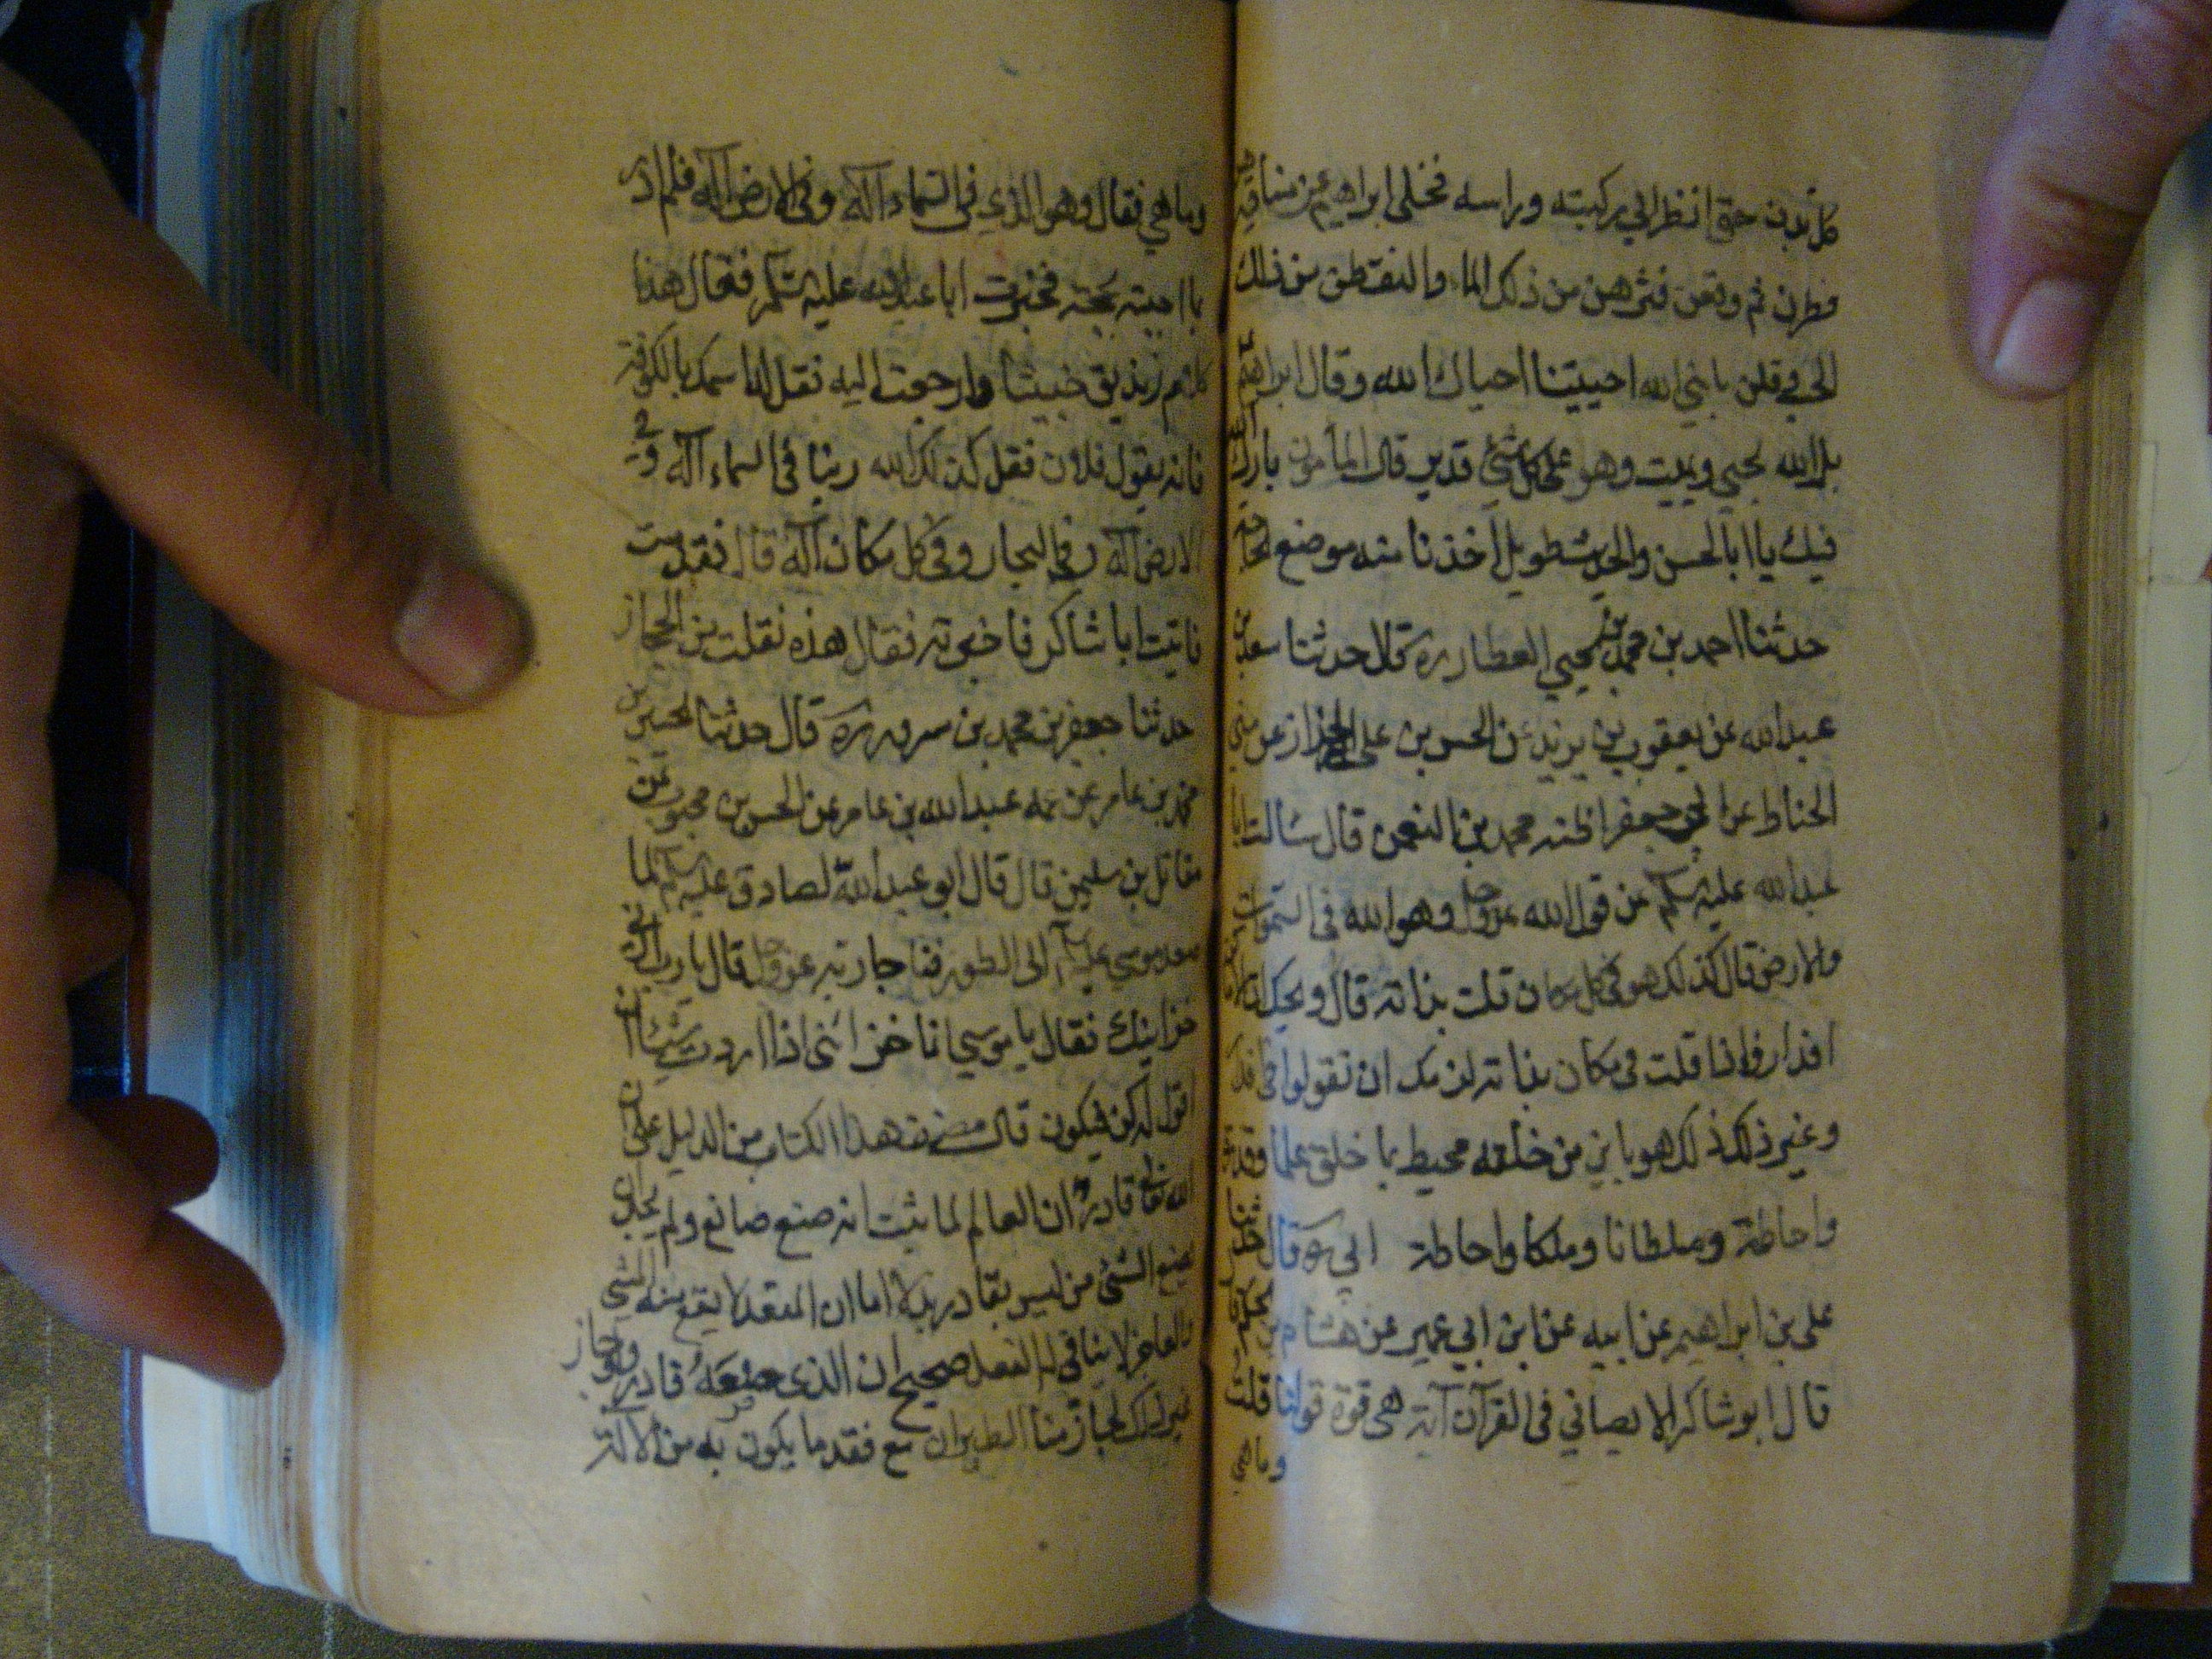 كل بدن حتى انظر الي ركبته وراسه فخلى ابراهيم عن مناقير
فطرن ثم وقعن فشربن من ذلك الماء والتقطن من ذلك
الحب وقلن يا نبي الله احييتنا احياك الله وقال ابراهيم
بل الله يحيي ويميت وهو على كل شئ قدير قال المأمون بارك الله
فيك يا ابا الحسن والحديث طويل اخذنا منه موضع الحاجة
حدثنا احمد بن محمد بن يحيي العطار ره قال حدثنا سعد بن
عبد الله عن يعقوب بن يزيد عن الحسن بن علي الخزاز عن مثنى
الحناط عن ابي جعفر اظنه محمد بن النعمن قال سألت ابا
عبد الله عليه السلم عن قول الله عز وجل وهو الله في السموات
والارض قال كذلك هو في كل مكان قلت بذاته قال ويحك ان الاماكن
اقدار فاذا قلت في مكان بذاته لزمك ان تقول في اقدار
وغير ذلك ذلك هو باين من خلقه محيط بما خلق علما وقدرة
واحاطة وسلطانا وملكا واحاطة ابي ره قال حدثنا
علي بن ابراهيم عن ابيه عن ابن ابي عمير عن هشام بن الحكم قال
قال ابو شاكر الديصاني في القرآن آية هي قوة قولنا قلت
وما هي
وما هي فقال وهو الذي في السماء اله وفي الارض اله فلم ادر
بما اجيبه بحجة فخبرت ابا عبد الله عليه السلم فقال هذا
كلام زنديق خبيث اذا رجعت اليه فقل له ما اسمك بالكوفة
فانه يقول فلان فقل كذلك الله ربنا في السماء اله وفي
الارض اله وفي البحار وفي كل مكان اله قال فقدمت
فاتيت ابا شاكر فاخبرته فقال هذه نقلت من الحجاز
حدثنا جعفر بن محمد بن مسرور ره قال حدثنا الحسين بن
محمد بن عامر عن عمه عبد الله بن عامر عن الحسن بن محبوب عن
مقاتل بن سليمن قال قال ابو عبد الله الصادق عليه السلم لما
صعد موسي عليه السلم الى الطور فناجا ربه عز وجل قال يا رب ارني
خزاينك فقال يا موسي انما خزائنى اذا اردت شيئا ان
اقول له كن فيكون قال مصنف هذا الكتاب من الدليل على ان
الله تعالى قادر ان العالم لما ثبت انه صنع صانع ولم يجز ان
يصنع الشئ من ليس بقادر بدلالة ان المقعد لا يقع منه المشي
والعاجز لا يتاتى له الفعل صح ان الذى صنعه قادر ولو جاز
غير ذلك لجاز منا الطيران مع فقد ما يكون به من الالة